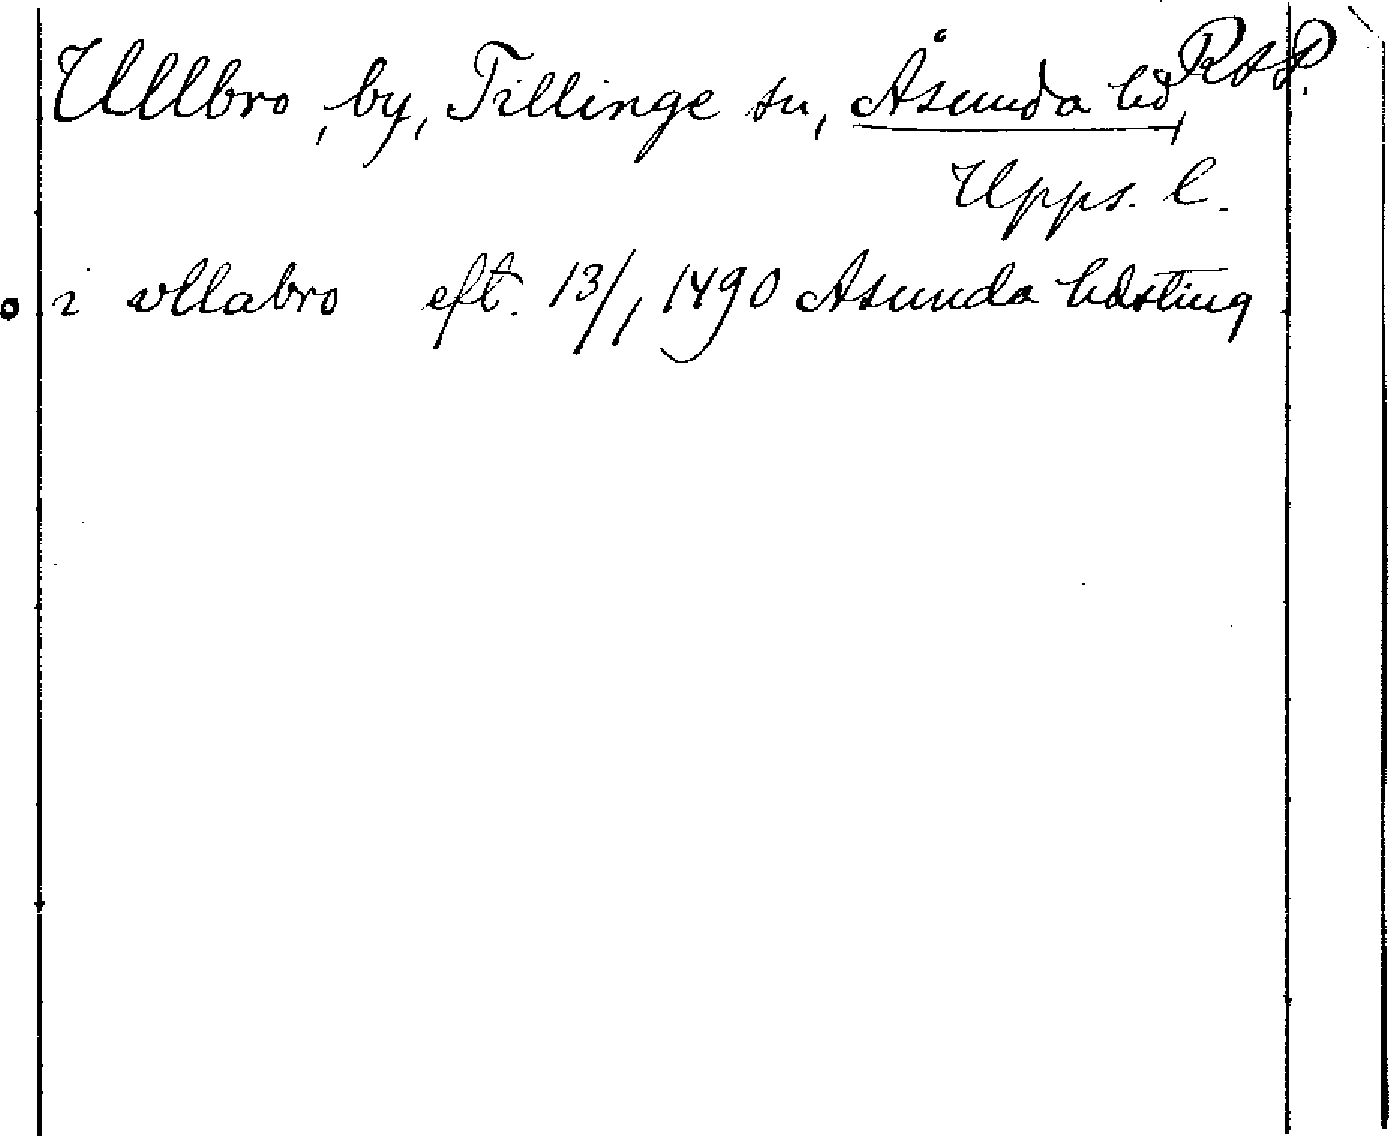 Ullbro, by, Tillinge sn, Åsunda hd, RAP.
Upps. l.
i vllabro eft. 13/1 1490 Asunda hdsting